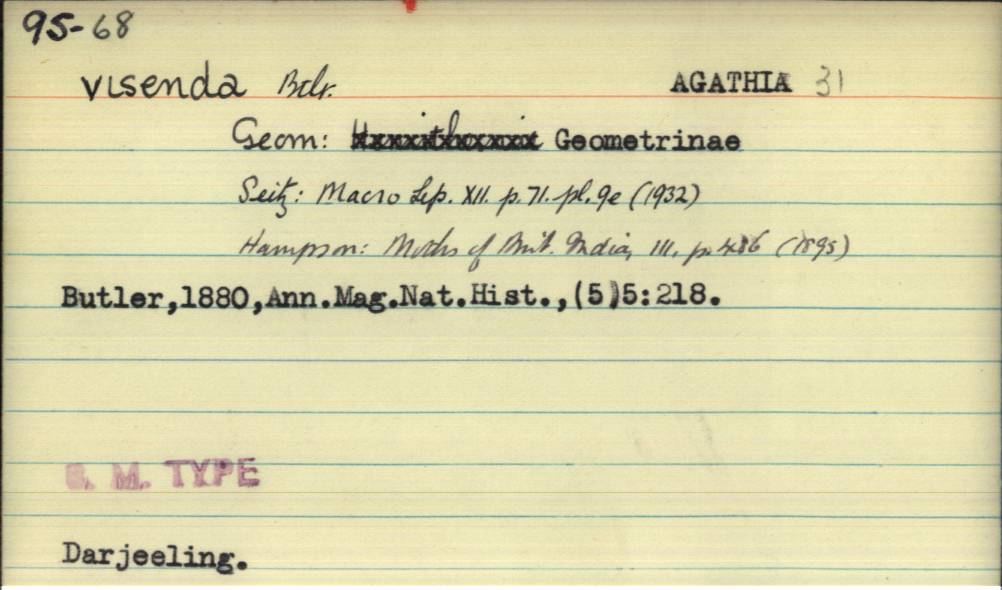 95-68
visenda Btlr. AGATHIA 31
Geom: Geometrinae
Seitz: Macro Lep. XII. p.71. pl.9e (1932)
Hampson: Moths of Brit. India, III. p. 486 (1895)
Butler,1880,Ann.Mag.Nat.Hist.,(5)5:218.
B. M. TYPE
Darjeeling.